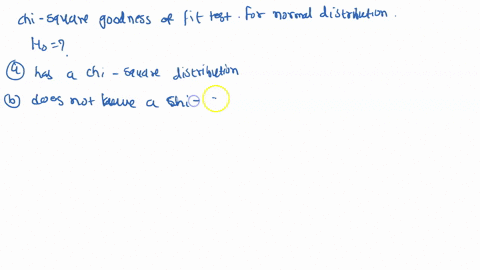 chi-square goodness of fit test. for normal distribution.
H₀=?
(a) has a chi-square distribution
(b) does not have a chi-